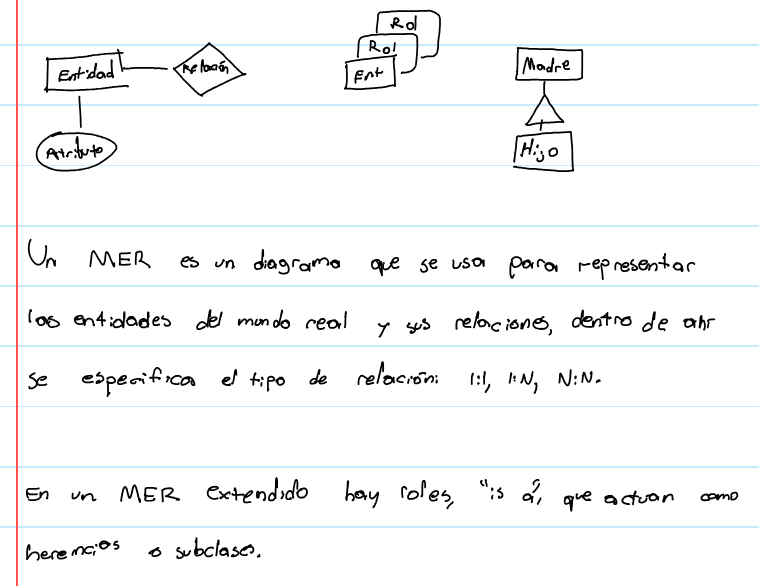 Rol
Rol
Ent
Entidad
Relación
Madre
Atributo
Hijo
Un MER es un diagrama que se usa para representar
las entidades del mundo real y sus relaciones, dentro de ahí
se especifica el tipo de relación: 1:1, 1:N, N:N.
En un MER extendido hay roles, "is a", que actuan como
herencias o subclases.